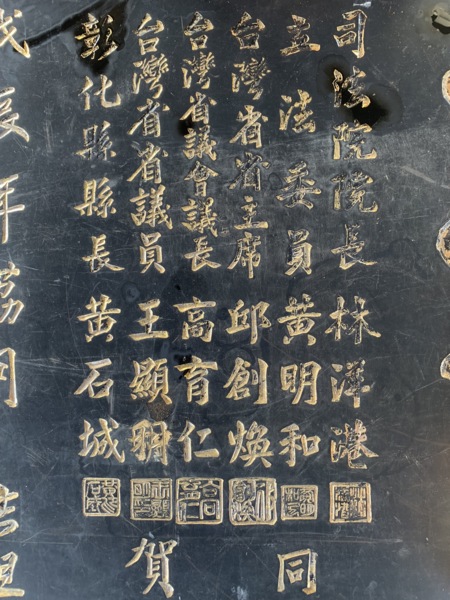 司法院院長 林洋港
立法委員 黃明和
台灣省省主席 邱創煥
台灣省議會議長 高育仁
台灣省省議員 王顯明
彰化縣縣長 黃石城
同賀